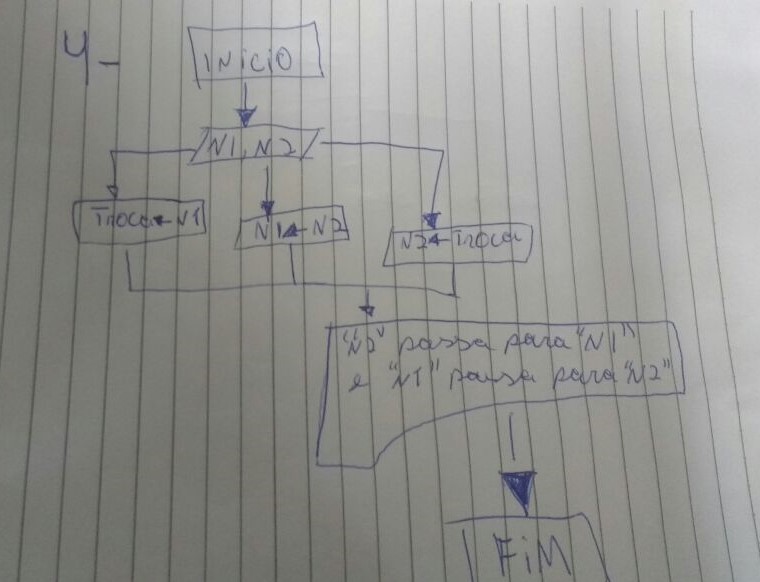 4-
INICIO
N1, N2
Troca←N1
N1←N2
N2←Troca
"N2" passa para "N1"
e "N1" passa para "N2"
FiM